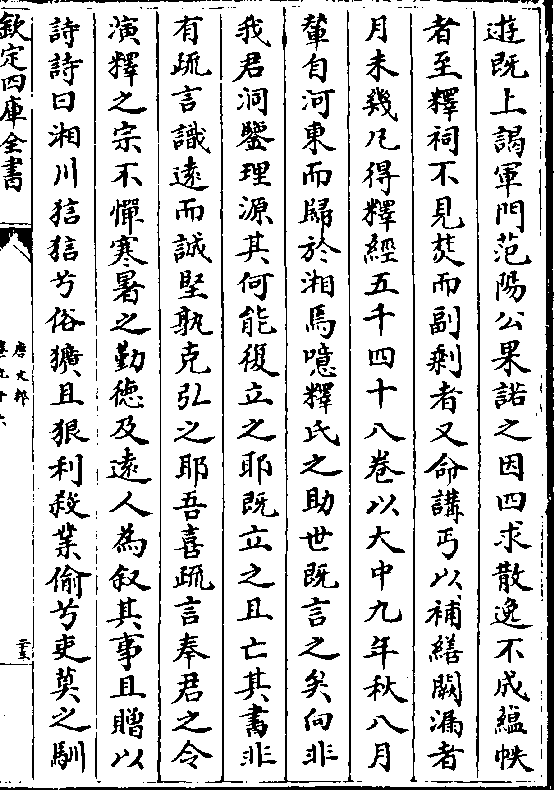 遊既上謁軍門范陽公果諾之因四求散逸不成藴帙
者至釋祠不見焚而副剩者又命講丐以補繕闕漏者
月未幾凡得釋經五千四十八卷以大中九年秋八月
輦自河東而歸於湘焉噫釋氏之助世既言之矣向非
我君洞鑒理源其何能復立之耶既立之且亡其書非
有疏言識遠而誠堅孰克弘之耶吾喜疏言奉君之令
演釋之宗不憚寒暑之勤德及遠人為叙其事且贈以
詩詩曰湘川狺狺兮俗獷且狠利殺業偷兮吏莫之馴
欽定四庫全書
唐文粹
卷九十六